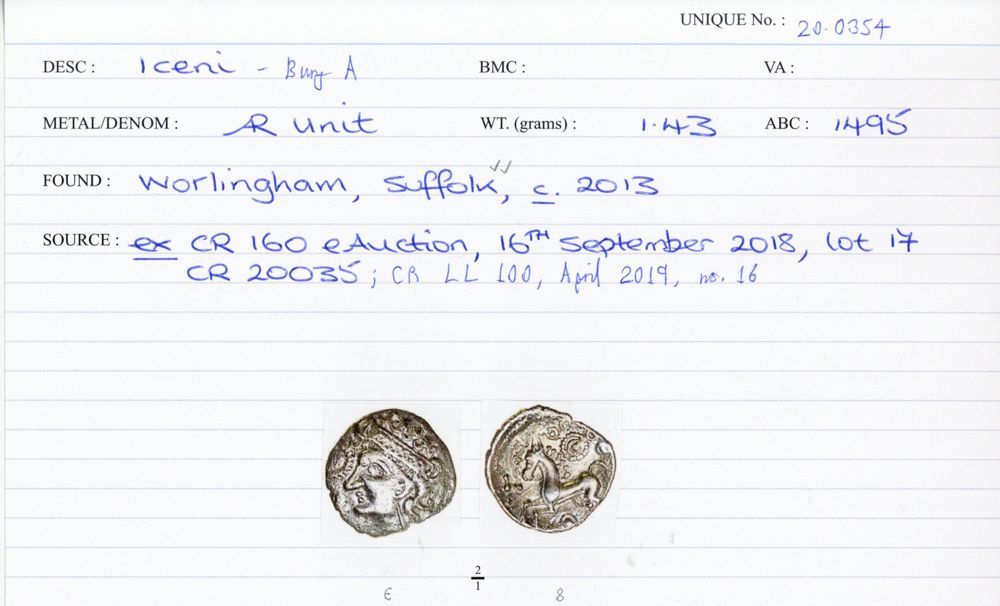 UNIQUE No. : 20.0354
DESC : Iceni - Bury A BMC : VA :
METAL/DENOM : AR unit WT. (grams) : 1.43 ABC : 1495
FOUND : Worlingham, Suffolk, c. 2013
SOURCE : ex CR 160 eAuction, 16TH September 2018, lot 17
CR 20035; CR LL 100, April 2019, no. 16
2
1
€ 8